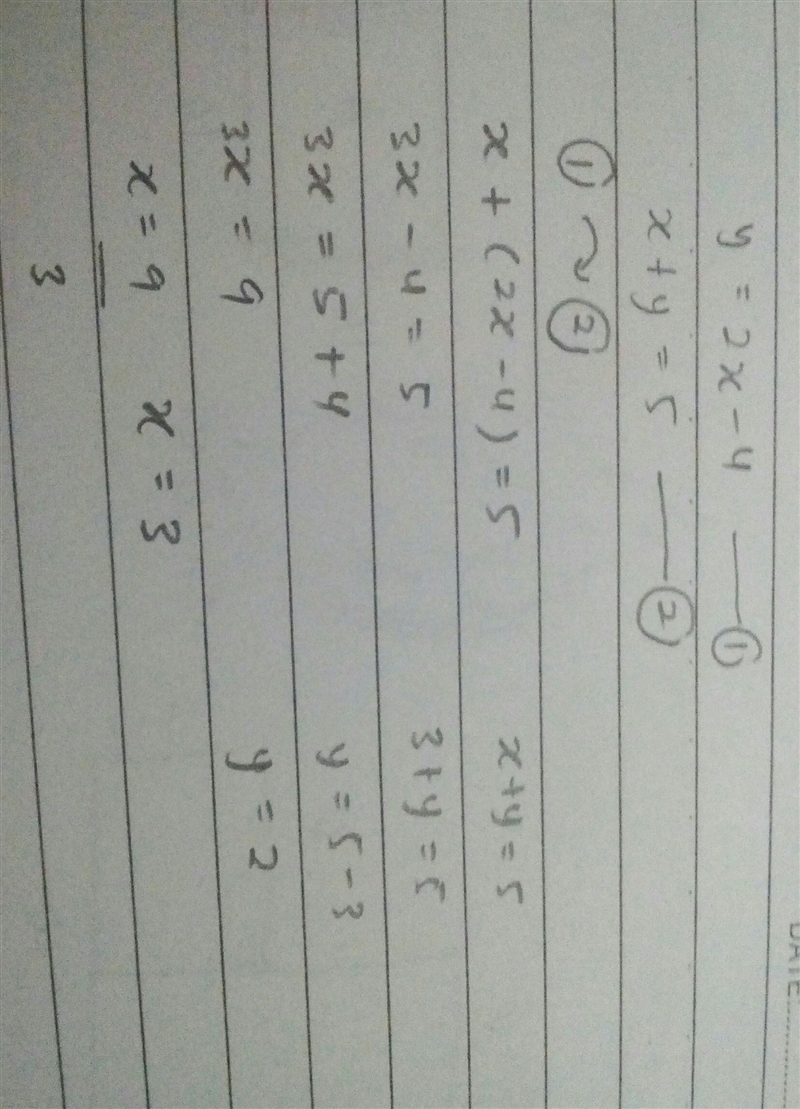 DATE
y = 2x - 4 —— ①
x + y = 5 —— ②
① ~ ②
x + (2x - 4) = 5
3x - 4 = 5
3x = 5 + 4
3x = 9
x = 9 x = 3
3
x + y = 5
3 + y = 5
y = 5 - 3
y = 2